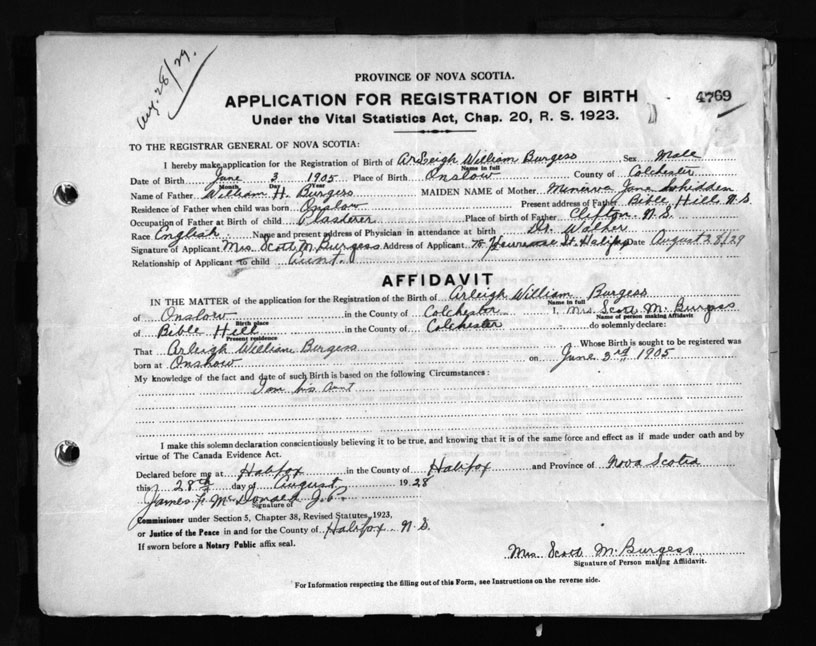 Aug. 28/29.
PROVINCE OF NOVA SCOTIA.
APPLICATION FOR REGISTRATION OF BIRTH
4769
Under the Vital Statistics Act, Chap. 20, R. S. 1923.
TO THE REGISTRAR GENERAL OF NOVA SCOTIA:
I hereby make application for the Registration of Birth of Arleigh William Burgess Sex Male
Name in full
Date of Birth June 3 1905 Place of Birth Onslow County of Colchester
Month Day Year
Name of Father William H. Burgess MAIDEN NAME of Mother Minerva Jane
Residence of Father when child was born Onslow Present address of Father Bible Hill N.S.
Occupation of Father at Birth of child Plasterer Place of birth of Father Clifton N.S.
Race English Name and present address of Physician in attendance at birth Dr. Walker
Signature of Applicant Mrs. Scott M. Burgess Address of Applicant St. Halifax Date August 28/29
Relationship of Applicant to child Aunt.
AFFIDAVIT
IN THE MATTER of the application for the Registration of the Birth of Arleigh William Burgess
Name in full
of Onslow in the County of Colchester I, Mrs Scott M. Burgess
Birth place
Name of person making Affidavit
of Bible Hill in the County of Colchester do solemnly declare:
Present residence
That Arleigh William Burgess Whose Birth is sought to be registered was
born at Onslow on June 3rd 1905
My knowledge of the fact and date of such Birth is based on the following Circumstances:
I am his aunt
I make this solemn declaration conscientiously believing it to be true, and knowing that it is of the same force and effect as if made under oath and by
virtue of The Canada Evidence Act.
Declared before me at Halifax in the County of Halifax and Province of Nova Scotia
this 28th day of August 1928
James F. McDonald J.P.
Signature of
Commissioner under Section 5, Chapter 38, Revised Statutes, 1923,
or Justice of the Peace in and for the County of Halifax N.S.
If sworn before a Notary Public affix seal.
Mrs Scott M. Burgess
Signature of Person making Affidavit.
For Information respecting the filling out of this Form, see Instructions on the reverse side.